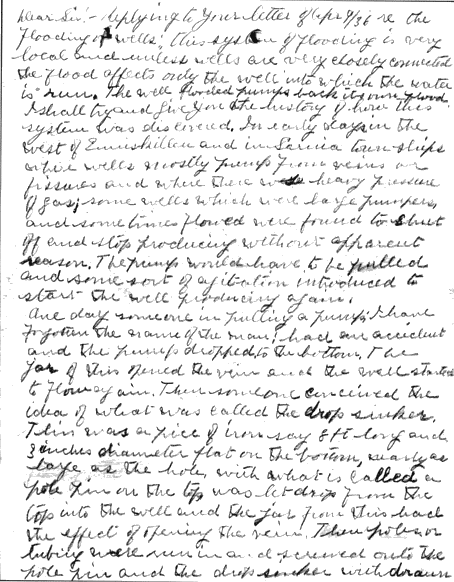 Dear Sir:- Replying to your letter of Apr 9/36 re the
flooding of wells: this system of flooding is very
local and unless wells are very closely connected
the flood affects only the well into which the water
is run. The well flooded pumps back its own flood.
I shall try and give you the history of how this
system was discovered. In early days in the
west of Enniskillen and in Sarnia townships
where wells mostly pump from veins or
fissures and where there was heavy pressure
of gas; some wells which were large pumpers,
and sometimes flowed were found to shut
off and stop producing without apparent
reason. The pumps would have to be pulled
and some sort of agitation introduced to
start the well producing again.
One day someone in pulling a pump: I have
forgotten the name of the man: had an accident
and the pumps dropped to the bottom. The
jar of this opened the vein and the well started
to flow again. Then someone conceived the
idea of what was called the drop sinker.
This was a piece of iron say 8 ft long and
3 inches diameter flat on the bottom, nearly as
large as the hole, with what is called a
pole pin on the top was let drop from the
top into the well and the jar from this had
the effect of opening the vein. Then poles or
tubing were run in and screwed onto the
pole pin and the drop sinker withdrawn